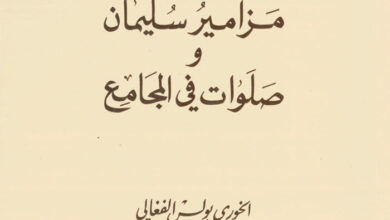 مَزامیرُ سُلیمَان
و
صَلَوات في المجَامِع
الخوري بولس الفغالي